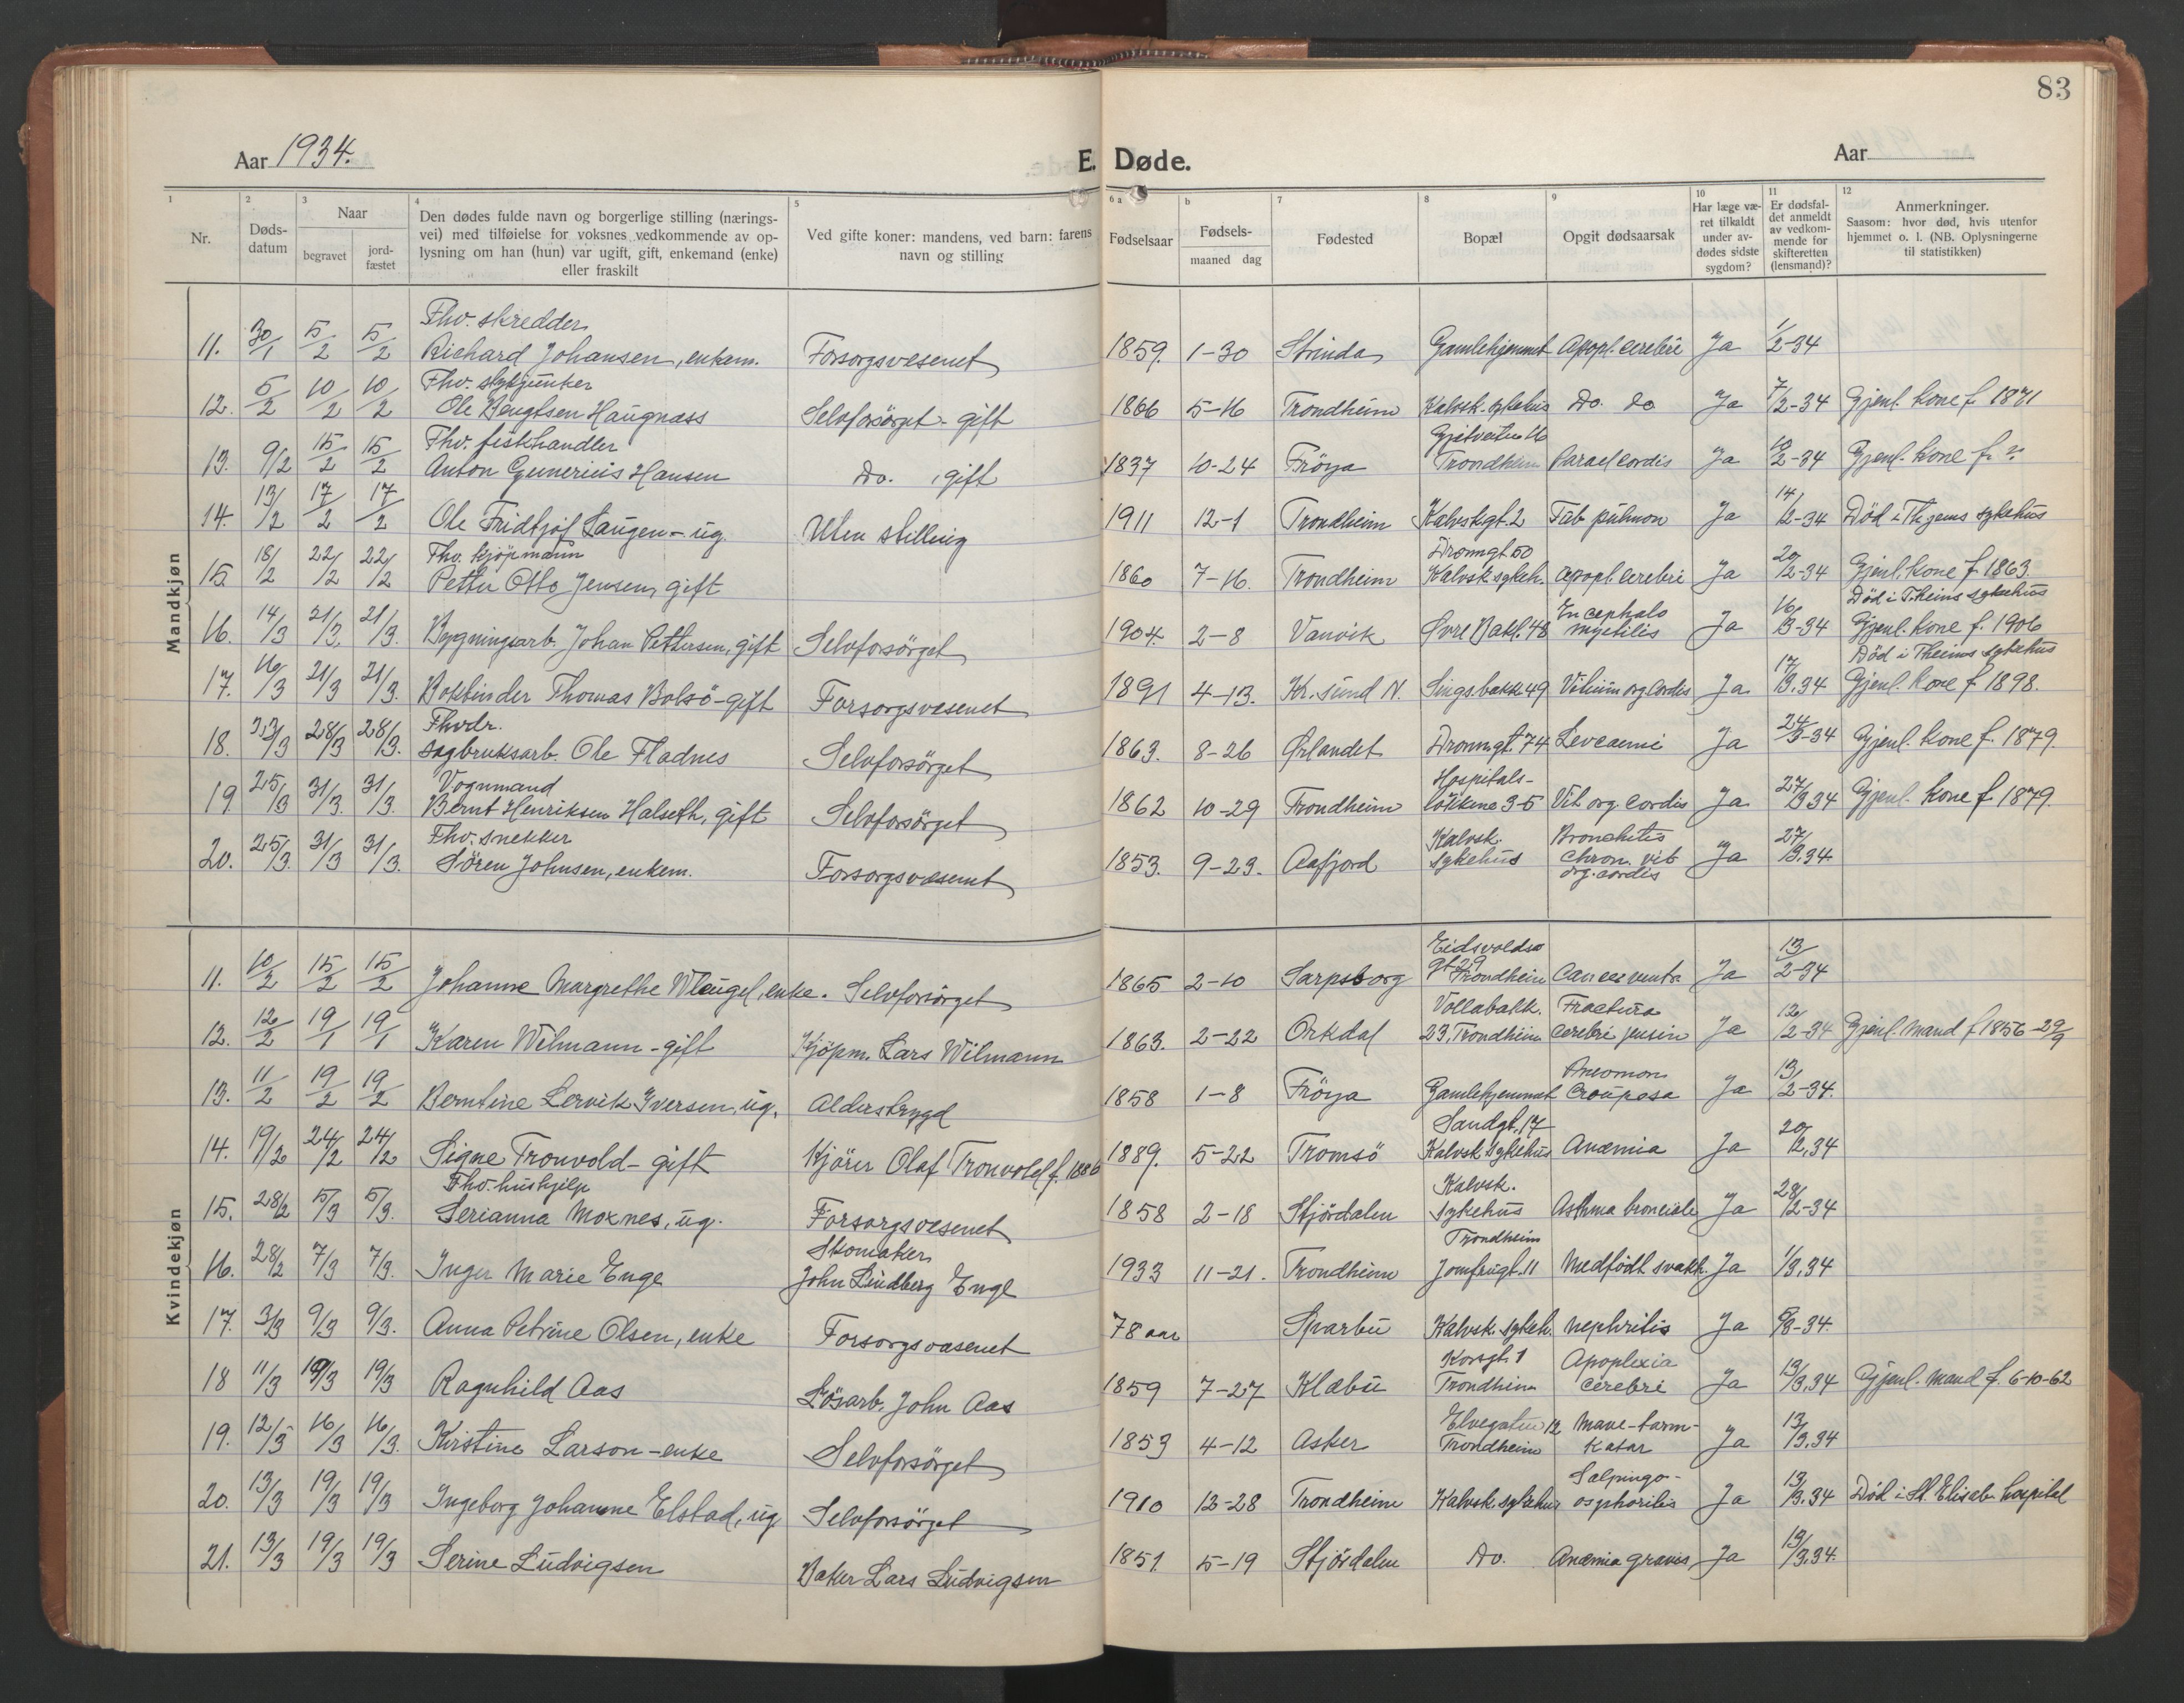 83
Aar 1934.
E. Døde.
Aar
1 Nr.
2 Døds-datum
3 Naar begravet jord-fæstet
4 Den dødes fulde navn og borgerlige stilling (nærings-
vei) med tilføielse for voksnes vedkommende av op-
lysning om han (hun) var ugift, gift, enkemand (enke)
eller fraskilt
5 Ved gifte koner: mandens, ved barn: farens
navn og stilling
6 a Fødselsaar
b Fødsels- maaned dag
7 Fødested
8 Bopæl
9 Opgit dødsaarsak
10 Har læge væ-
ret tilkaldt
under av-
dødes sidste
sygdom?
11 Er dødsfal-
det anmeldt
av vedkom-
mende for
skifteretten
(lensmand)?
12 Anmerkninger.
Saasom: hvor død, hvis utenfor
hjemmet o. l. (NB. Oplysningerne
til statistikken)
Mandkjøn
11. 30/1 5/2 5/2 Fhv. skredder Richard Johansen, enkem. Forsorgsvesenet 1859. 1-30 Strinda Gamlehjemmet Apopl. cerebri Ja 1/2-34
12. 5/2 10/2 10/2 Fhv. Ole Bengtsen Haugnass Selvforsörget - gift 1866 5-16 Trondheim Kalvsk. sykehus Do. do Ja 7/2-34 Gjenl. kone f. 1871
13. 9/2 15/2 15/2 Fhv. fiskhandler Anton Gunerius Hansen Do. , gift 1837 10-24 Fröya Trondheim cordis Ja 10/2-34 Gjenl. kone f. ?
14. 13/2 17/2 17/2 Ole Fridtjof Laugen - ug. Uten stilling 1911 12-1 Trondheim Kalvskgt. 2 Tab pulmon Ja 14/2-34 Död i Thjems sykehus
15. 18/2 22/2 22/2 Fhv. kjöpmann Petter Otto Jensen, gift 1860 7-16. Trondheim Dronngt 50 Kalvsk sykeh. Apopl. cerebri Ja 20/2-34 Gjenl. kone f. 1863
16. 14/3 21/3. 21/3. Bygningsarb. Johan Pettersen, gift Selvforsörget 1904. 2-8 Vanvik Øvre Bakl. 48 Encephalo myetilis Ja 16/3-34 Död i T.heims sykehus Gjenl. kone f. 1906
17. 16/3 21/3 21/3. Bokbinder Thomas Bolsö - gift Forsorgsvesenet 1891 4-13. Kr. sund N. Singsbakk. 49 Vitium org. Cordis Ja 17/3.34 Död i Theims sykehus Gjenl. kone f. 1898.
18. 23/3 28/3 28/3. Fhvdr. sagbruksarb. Ole Fladnes Selvforsörget 1863. 8-26 Ørlandet Dronngt. 74 Leveaemi Ja 24/3-34 Gjenl. kone f. 1879.
19 25/3 31/3. 31/3. Vognmand Bernt Henriksen Halseth, gift Selvforsörget 1862 10-29 Trondheim Hospitals-lökkene 3-5 Vit. org. cordis Ja 27/3 34 Gjenl. kone f. 1879.
20. 25/3. 31/3 31/3. Fhv. snekker Sören Johnsen, enkem. Forsorgsvesenet 1853. 9-23. Aafjord Kalvsk. sykehus Bronchitis chron. vit org. cordis Ja 27/3.34
Kvindekjøn
11. 10/2 15/2 15/2 Johanne Margrethe Wleugel, enke. Selvforsörget 1865 2-10 Sarpsborg Eidsvolds gt 29 Trondheim Cancer ventr. Ja 13/2-34
12. 12/2 19/1 19/1 Karen Wilmann - gift Kjöpm. Lars Wilmann 1863. 2-22 Orkdal Vollabakk. 23, Trondheim Fractura cerebri Ja 12/2-34 Gjenl. mand f 1856-29/9
13. 11/2 19/2 19/2 Berntine Lervik Iversen, ug. Alderstrygd 1858 1-8 Fröya Gamlehjemmet Pneumoni Croupøsa Ja 13/2-34.
14. 19/2 24/2 24/2 Signe Tronvold - gift Kjörer Olaf Tronvold f. 1886 1889. 5-22 Tromsö Sandgt. 17 Kalvsk sykehus Anæmia Ja 20/2.34
15. 28/2 5/3 5/3. Fhv. hushjelp Serianna Moxnes, ug. Forsorgsvesenet 1858 2-18 Stjördalen Kalvsk. sykehus Asthma bronciale Ja 28/2-34
16. 28/2 7/3 7/3. Inger Marie Enge Skomaker John Lindberg Enge 1933 11-21. Trondheim Trondheim Jomfrugt. 11 Medfödt svakh. Ja 1/3.34
17. 3/3 9/3 9/3. Anna Petrine Olsen, enke Forsorgsvæsenet 78 aar Sparbu Kalvsk. sykeh. Nephritis Ja 5/3-34.
18 11/3 19/3 19/3 Ragnhild Aas Lösarb. John Aas 1859 7-27 Klæbu Korsgt. 1 Trondheim Apoplexia cerebri Ja 13/3.34 Gjenl. mand f. 6-10-62
19. 12/3 16/3 16/3. Kirstine Larson - enke Selvforsörget 1853 4-12 Asker Elvegaten 12 Trondheim Mave-tarm-katar Ja 13/3.34
20. 13/3 19/3 19/3 Ingeborg Johanne Elstad, ug. Selvforsörget 1910 12-28 Trondheim Kalvsk. sykehus Salpingo-osphoritis Ja 13/3.34 Död i St. Elisab. hospital
21. 13/3 19/3 19/3 Serine Ludvigsen Baker Lars Ludvigsen 1851 5-19 Stjördalen Do. Anæmia gravis Ja 13/3.34.